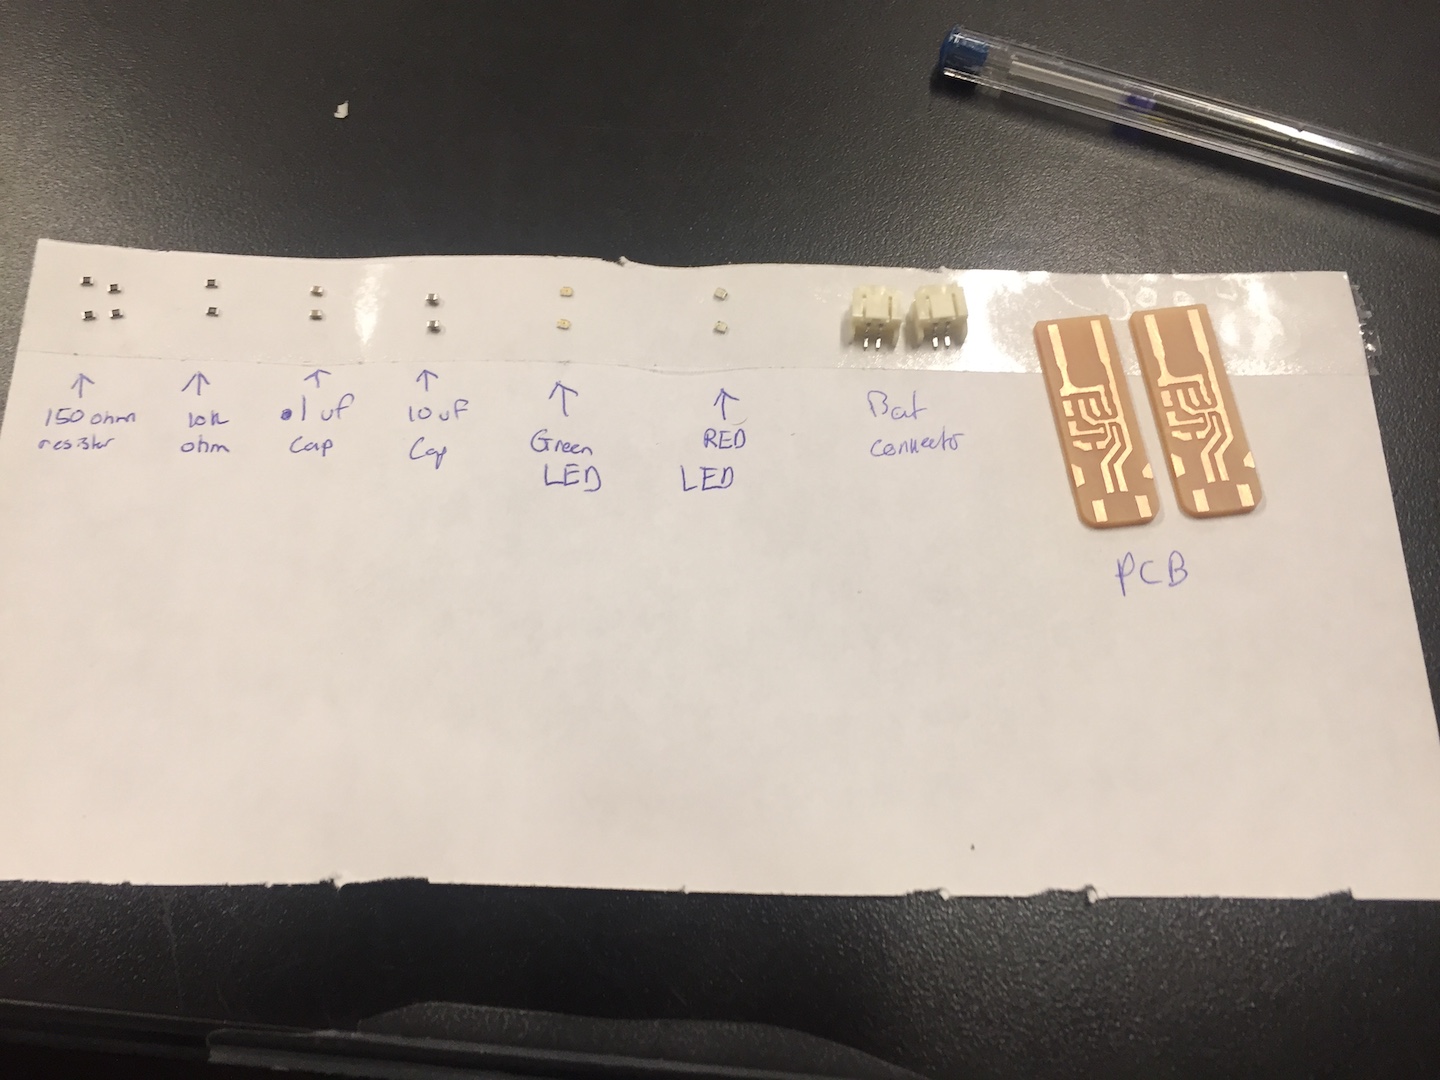 150 ohm
resistor
10k
ohm
.1 uf
Cap
10 uf
Cap
Green
LED
RED
LED
Bat
connector
PCB